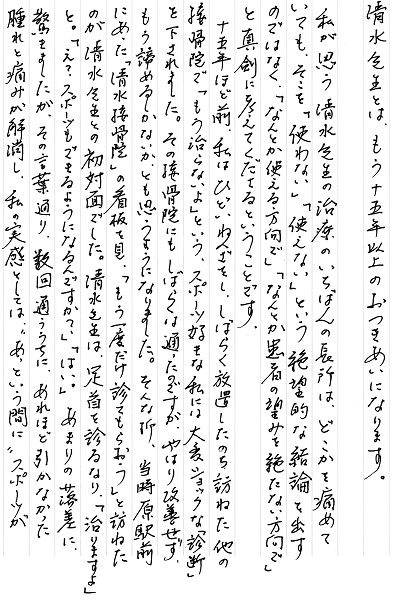 清水先生とは、もう十五年以上のおつきあいになります。
私が思う清水先生の治療のいちばんの長所は、どこかを痛めて
いても、そこを「使わない」「使えない」という絶望的な結論を出す
のではなく、「なんとか使える方向で」「なんとか患者の望みを絶たない方向で」
と真剣に考えてくださるということです。
十五年ほど前、私はひどいねんざをし、しばらく放置したのち訪ねた他の
接骨院で「もう治らないよ」という、スポーツ好きな私には大変ショックな「診断」
を下されました。その接骨院にもしばらくは通ったのですが、やはり改善せず、
もう諦めるしかないか、とも思うようになりました。そんな折、当時原駅前
にあった「清水接骨院」の看板を見、「もう一度だけ診てもらおう」と訪ねた
のが清水先生との初対面でした。清水先生は、足首を診るなり、「治りますよ」
と。「え?スポーツもできるようになるんですか?」「はい。」あまりの落差に、
驚きましたが、その言葉通り、数回通ううちに、あれほど引かなかった
腫れと痛みが解消し、私の実感としては、“あっという間に”スポーツが